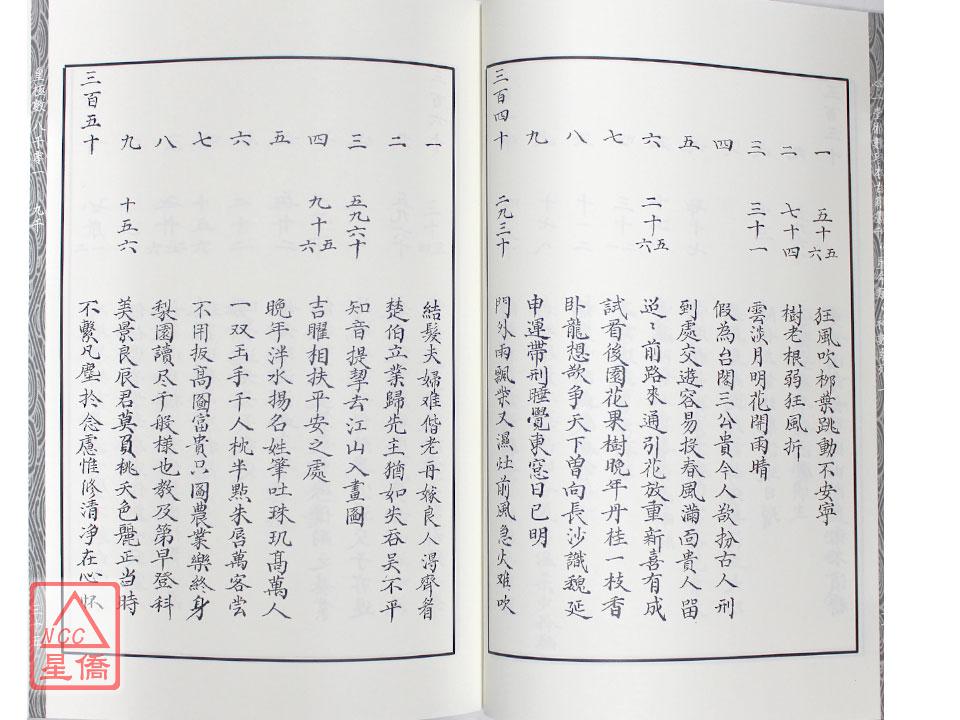 一 五十五六 狂風吹柳葉跳動不安寧
二 七十四 樹老根弱狂風折
三 三十一 雲淡月明花開雨晴
四 假為台閣三公貴今人欲扮古人形
五 到處交遊容易投春風滿面貴人留
六 二十五六 迢々前路來通引花放重新喜有成
七 試看後園花果樹晚年丹桂一枝香
八 臥龍想欲爭天下曽向長沙識魏延
九 申運帶刑睡覺東窓日已明
三百四十 二九三十 門外雨飄柴又濕灶前風急火难吹
一 結髮夫婦难偕老再嫁良人淂齊眉
二 楚伯立業歸先主猶如失吞吴不平
三 五九六十 知音提挈去江山入畫圖
四 九十五六 吉曜相扶平安之處
五 晚年泮水揚名姓筆吐珠玑髙萬人
六 一双玉手千人枕半點朱唇萬客嘗
七 不用扳髙圖富貴只圖農業樂終身
八 梨園讀尽千般樣也教及第早登科
九 十五六 美景良辰君莫負桃夭色麗正当時
三百五十 不繫凡塵於念慮惟修清净在心怀
皇極數
九千
NCC
星僑